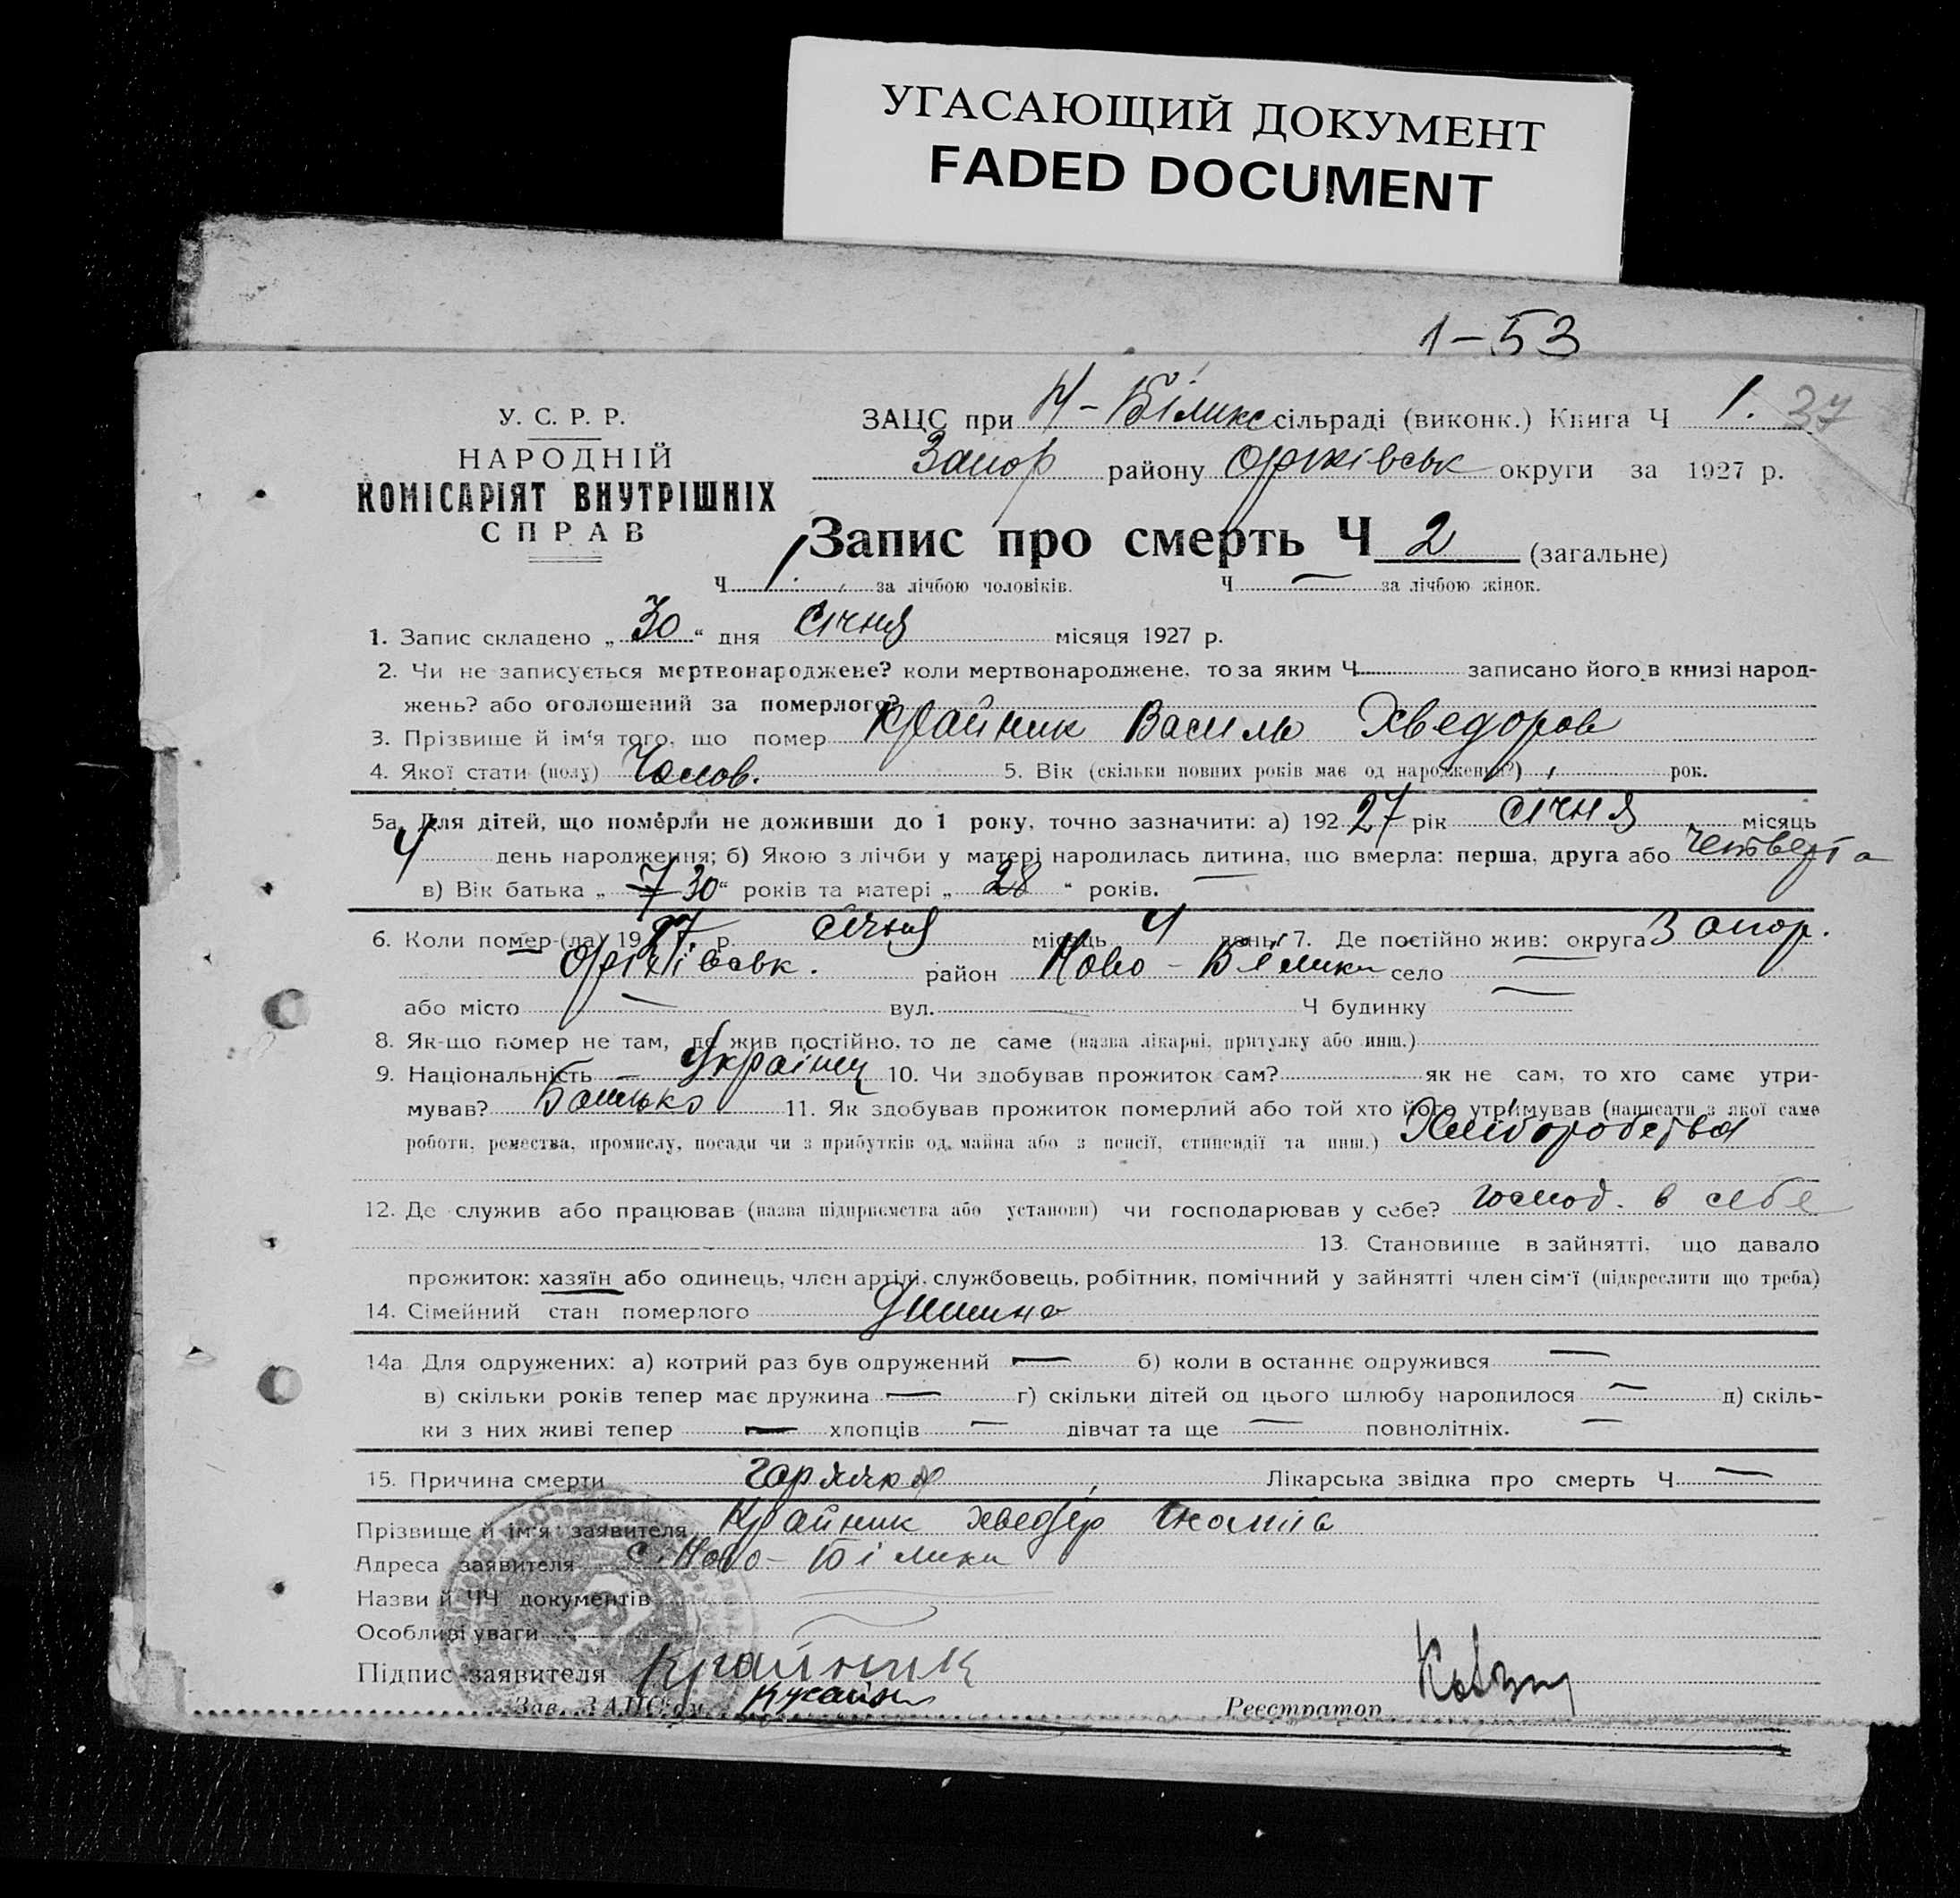 УГАСАЮЩИЙ ДОКУМЕНТ
FADED DOCUMENT
1-53
У. С. Р. Р.
НАРОДНІЙ
КОМІСАРІЯТ ВНУТРІШНІХ
СПРАВ
ЗАЦС при Н-Біликс сільраді (виконк.) Книга Ч 1. 37
Запор району Оріхівськ округи за 1927 р.
Запис про смерть Ч 2 (загальне)
Ч 1. за лічбою чоловіків. Ч — за лічбою жінок.
1. Запис складено „ 30 “ дня Січня місяця 1927 р.
2. Чи не записується мертвонароджене? коли мертвонароджене, то за яким Ч записано його в книзі народ-
жень? або оголошений за померлого?
3. Прізвище й ім'я того, що помер Крайник Василь Хведоров
4. Якої стати (полу) Чолов. 5. Вік (скільки повних років має од народження?) рок.
5а Для дітей, що померли не доживши до 1 року, точно зазначити: а) 192 27 рік Січня місяць
4 день народження; б) Якою з лічби у матері народилась дитина, що вмерла: перша, друга або четверта
в) Вік батька „ 30 “ років та матері „ 28 “ років. —
6. Коли помер-(ла) 1927 р. Січня місяць 4 день 7. Де постійно жив: округа Запор.
Оріхівськ. район Ново-Білики село —
або місто — вул. — Ч будинку —
8. Як-що помер не там, де жив постійно, то де саме (назва лікарні, притулку або инш.)
9. Національність — Українец 10. Чи здобував прожиток сам? як не сам, то хто саме утри-
мував? Батько 11. Як здобував прожиток померлий або той хто його утримував (написати з якої саме
роботи, ремества, промислу, посади чи з прибутків од майна або з пенсії, стипендії та инш.) Хліборобства
12. Де служив або працював (назва підприємства або установи) чи господарював у себе? господ. в себе
13. Становище в зайнятті, що давало
прожиток: хазяїн або одинець, член артілі, службовець, робітник, помічний у зайнятті член сім'ї (підкреслити що треба)
14. Сімейний стан померлого Дитина
14а Для одружених: а) котрий раз був одружений — б) коли в останнє одружився —
в) скільки років тепер має дружина — г) скільки дітей од цього шлюбу народилося — д) скіль-
ки з них живі тепер — хлопців — дівчат та ще — повнолітніх. —
15. Причина смерти гарячка, Лікарська звідка про смерть Ч —
Прізвище й ім'я заявителя Крайник Хведір
Адреса заявителя С. Ново-Білики
Назви й ЧЧ документів
Особливі уваги
Підпис заявителя Крайник
Зав. ЗАЦС'ом
Реєстратор